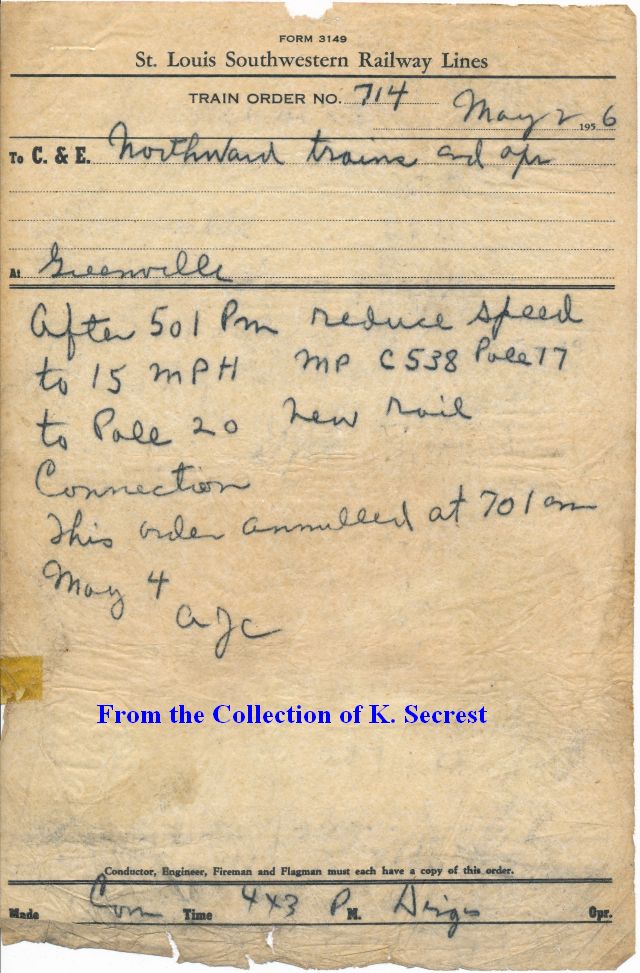 FORM 3149
St. Louis Southwestern Railway Lines
TRAIN ORDER NO. 714
May 2 1956
To C. & E. Northward trains and opr
At Greenville
After 501 Pm reduce speed
to 15 MPH MP C538 Pole 17
to Pole 20 new rail
Connection
This order annulled at 701 am
May 4
AJC
From the Collection of K. Secrest
Conductor, Engineer, Fireman and Flagman must each have a copy of this order.
Made Com Time 4x3 P M. Opr.